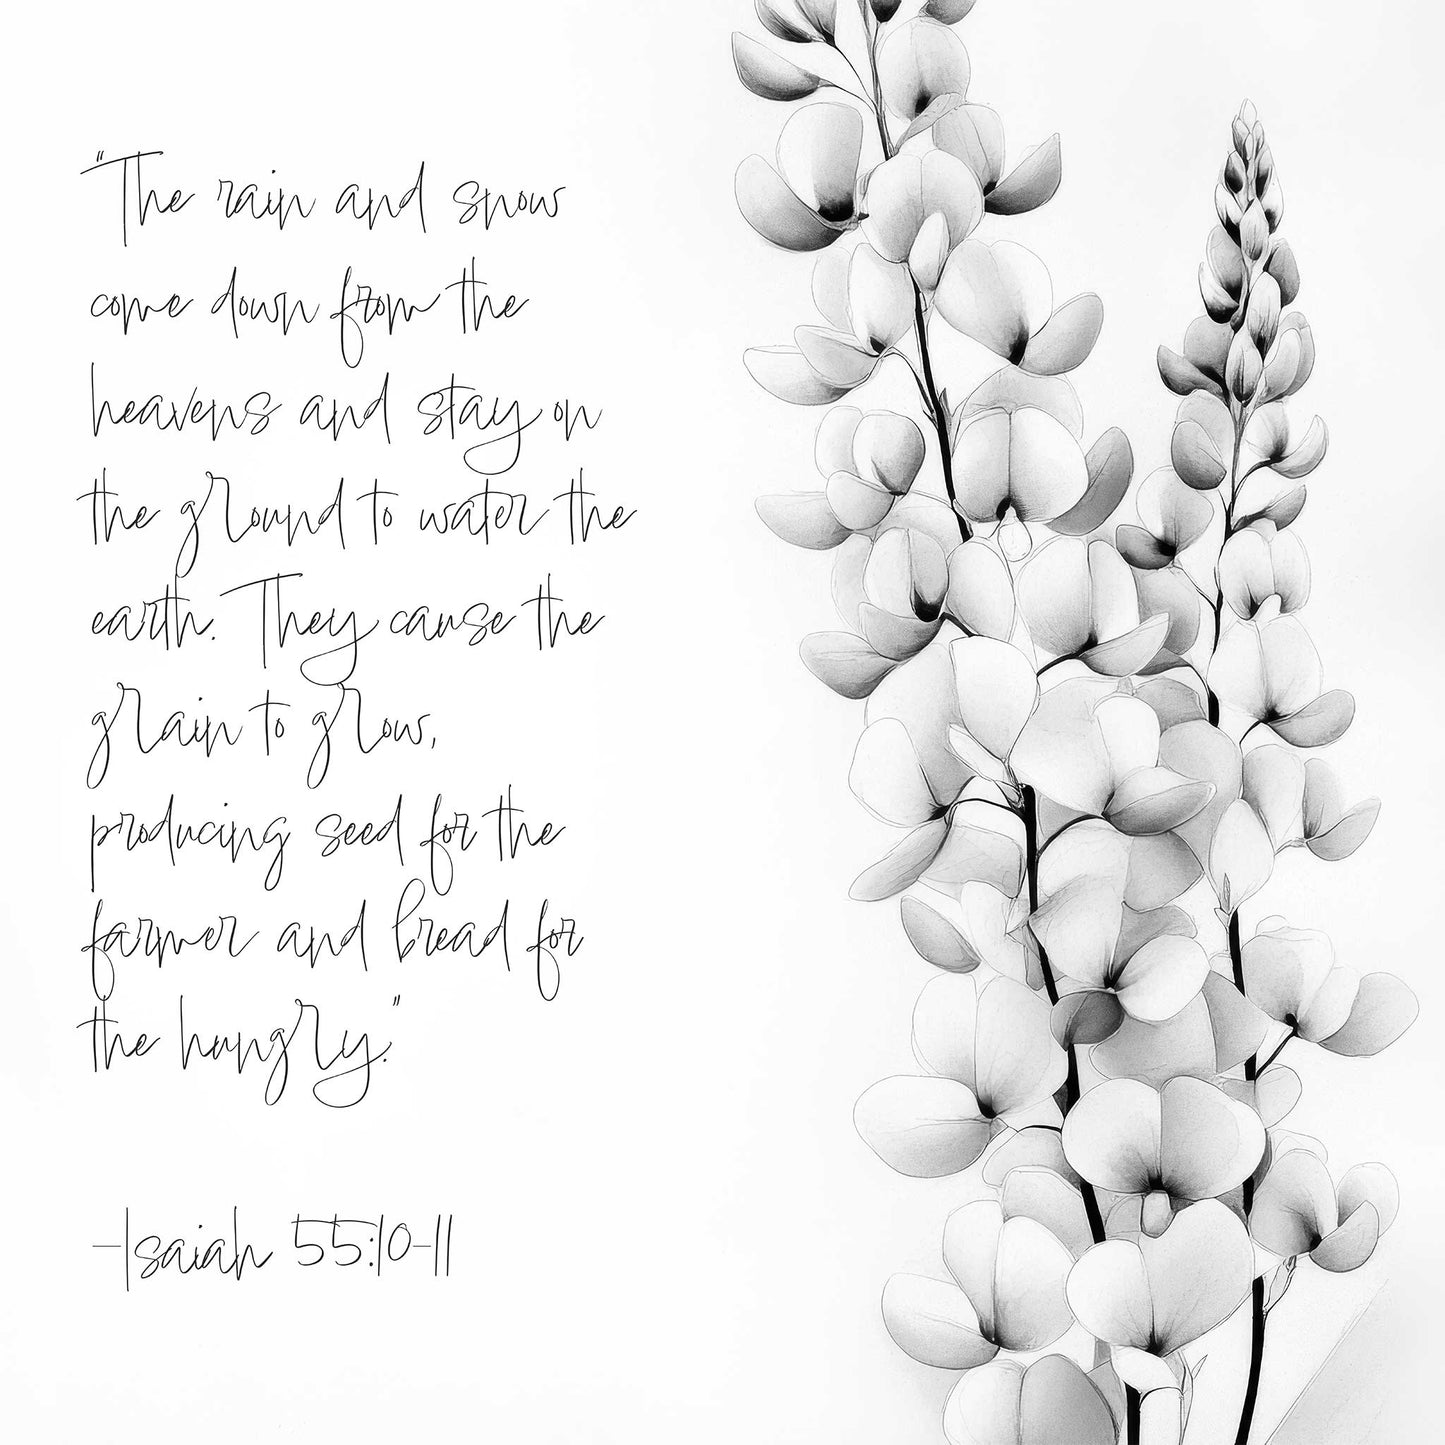 "The rain and snow
come down from the
heavens and stay on
the ground to water the
earth. They cause the
grain to grow,
producing seed for the
farmer and bread for
the hungry."
-Isaiah 55:10-11